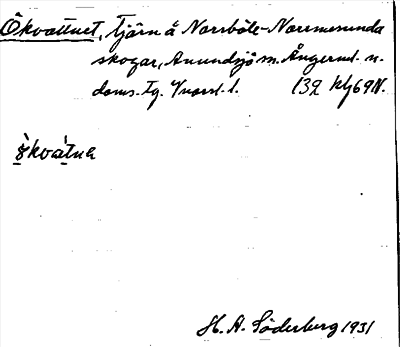 Ökvattnet, Tjärn å Norrböle-Norrmesunda
skogar, Anundsjö sn. Ångerml. n.
doms. tg. Kvarst. l. 132 kj 69 N.
ö̀kvàtna
H. A. Söderberg 1931